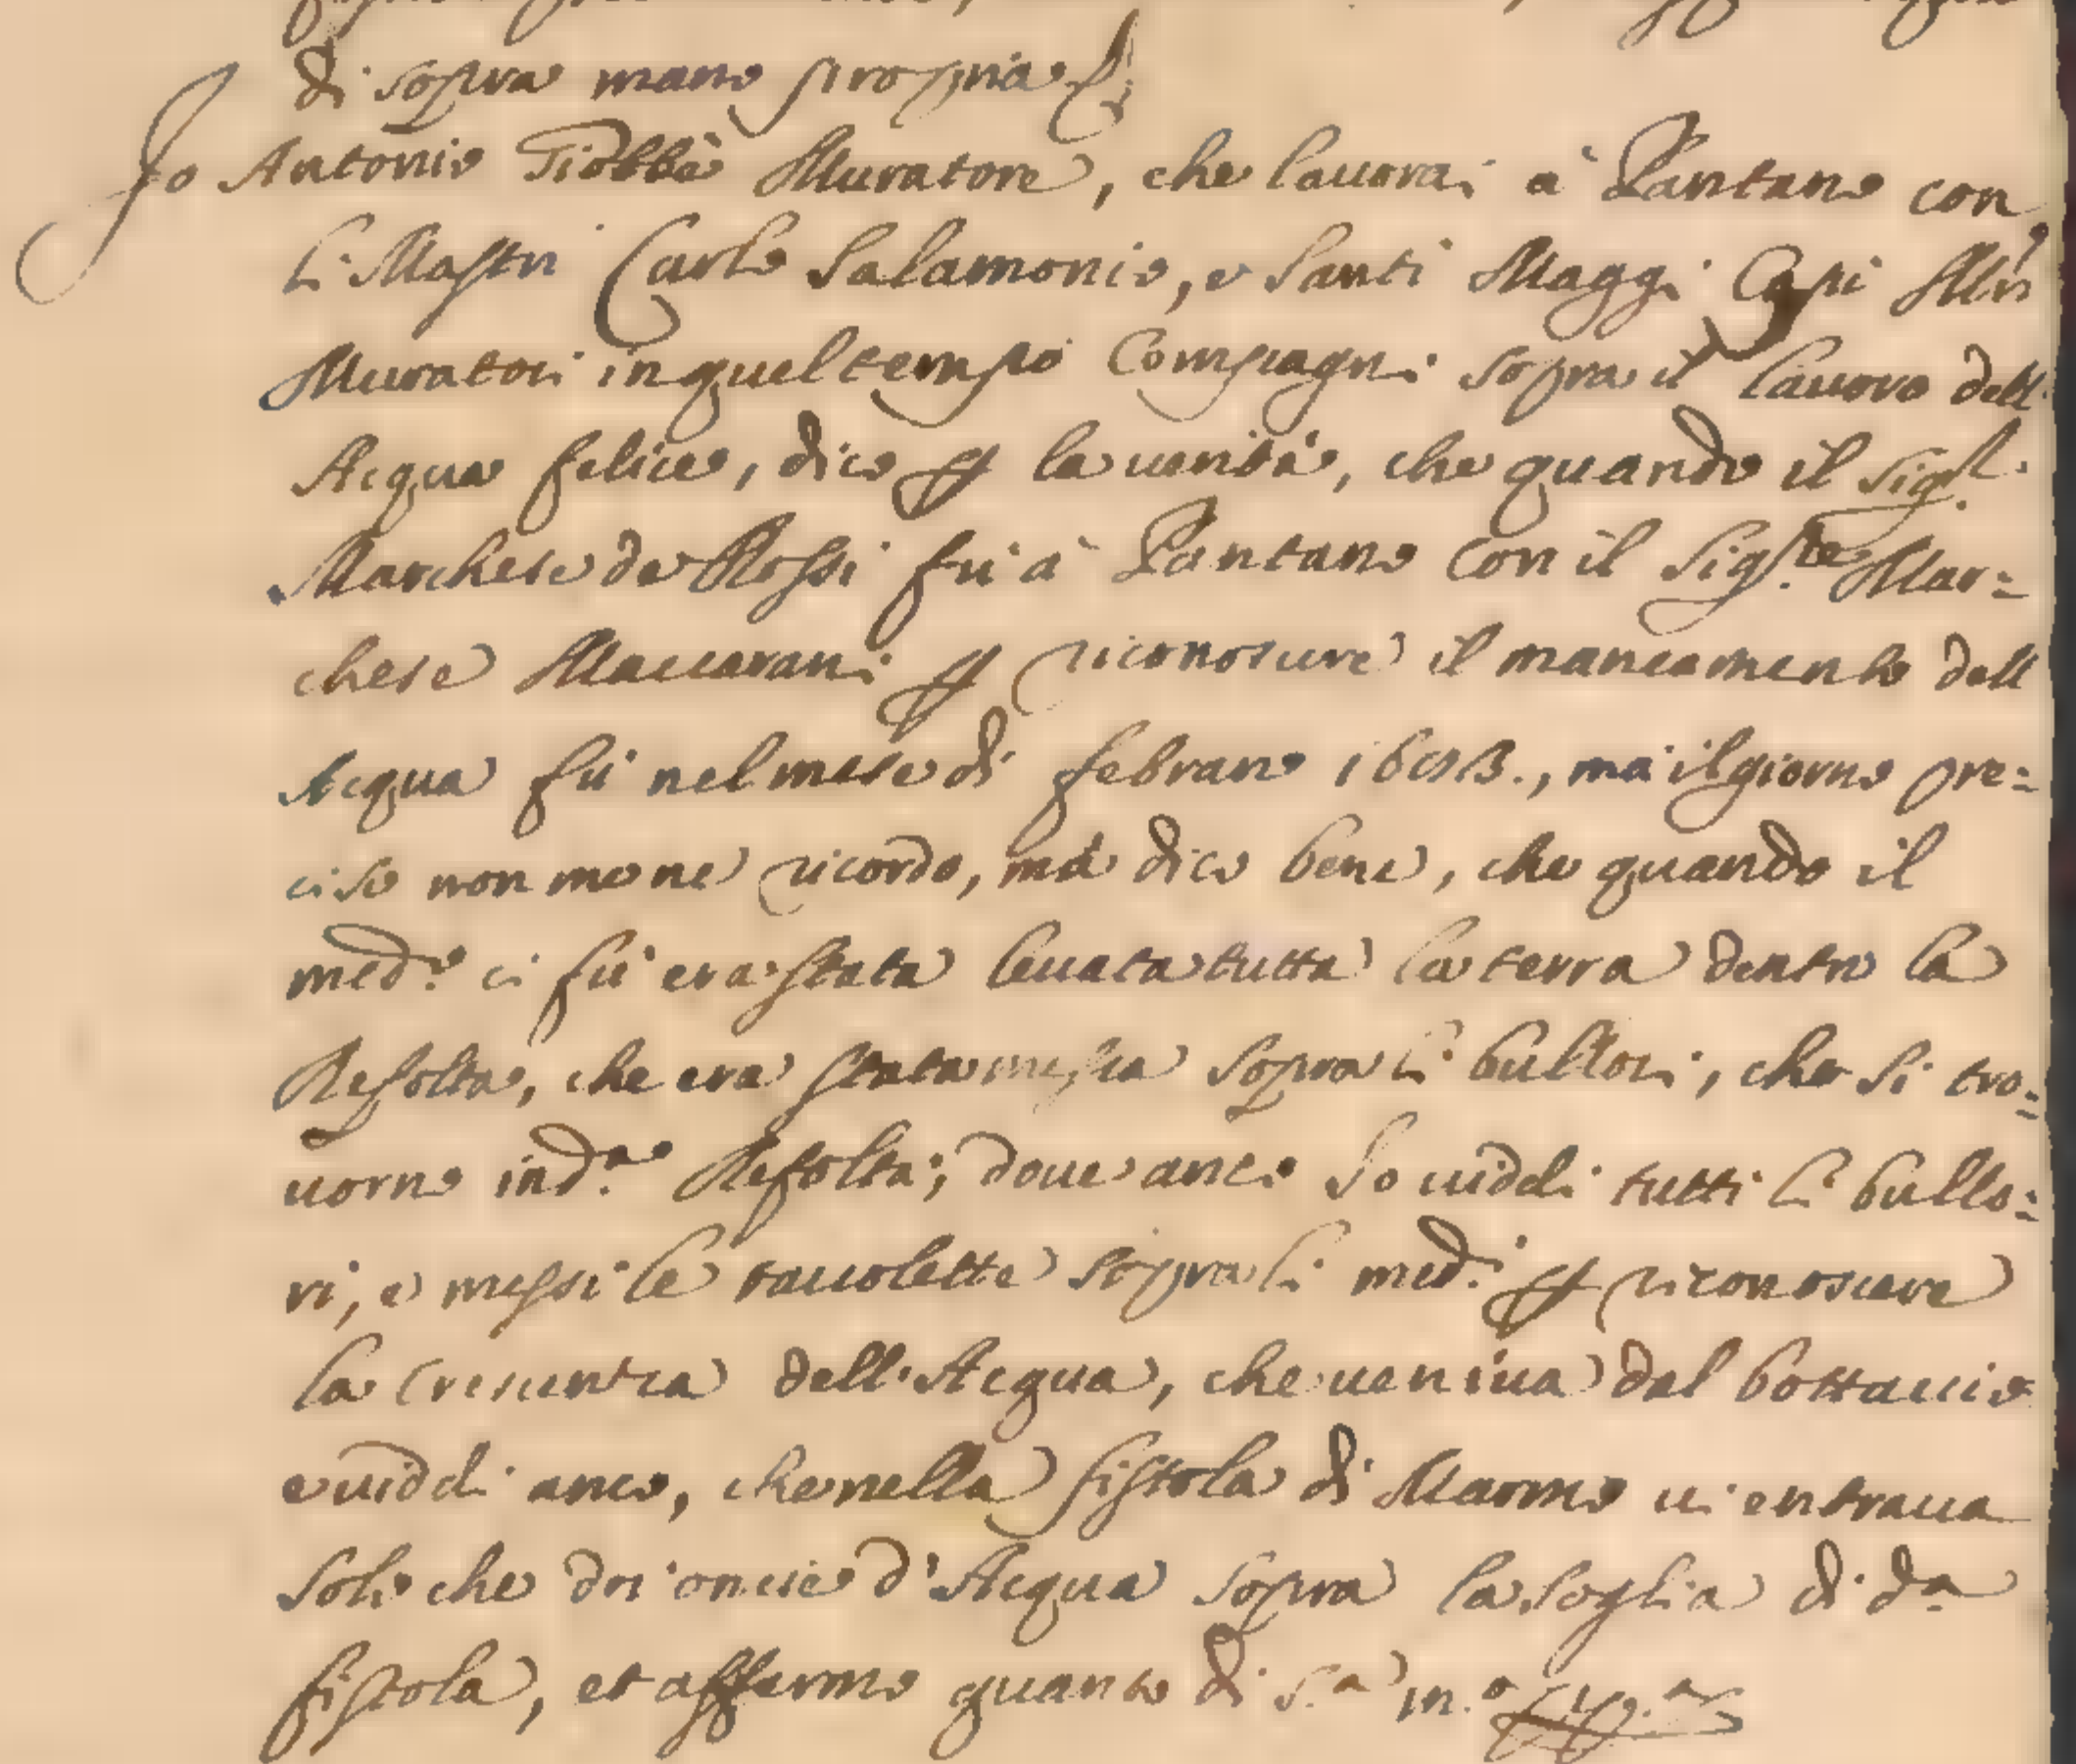 di sopra mano propria
Io Antonio Tiobbà Muratore, che lauorai à Pantano con
li Mastri Carlo Salamonio, e Santi Maggi Capi Mri
Muratori in quel tempo Compagni sopra il lauoro dell
Acqua felice, dico p la uerità, che quando il Sigr.
Marchese de Rossi fù à Pantano con il Sigre. Mar=
chese Maccarani p riconoscere il mancamento dell
Acqua fù nel mese di febraro 1693., mà il giorno pre=
ciso non me ne ricordo, mà dico bene, che quando il
medo. ci fù era stata leuata tutta la terra dentro la
Refolta, che era stata messa sopra li bullori, che si tro=
uorno in da. Refolta; doue anco Io uiddi tutti li bullo=
ri, e messi le tauolette sopra li medi. p riconoscere
la Crescentia dell'Acqua, che ueniua dal bottaccio
e uiddi anco, che nella fistola di Marmo ui entraua
solo che doi oncie d'Acqua sopra la soglia di da.
fistola, et affermo quanto di s.a m.o pp.a